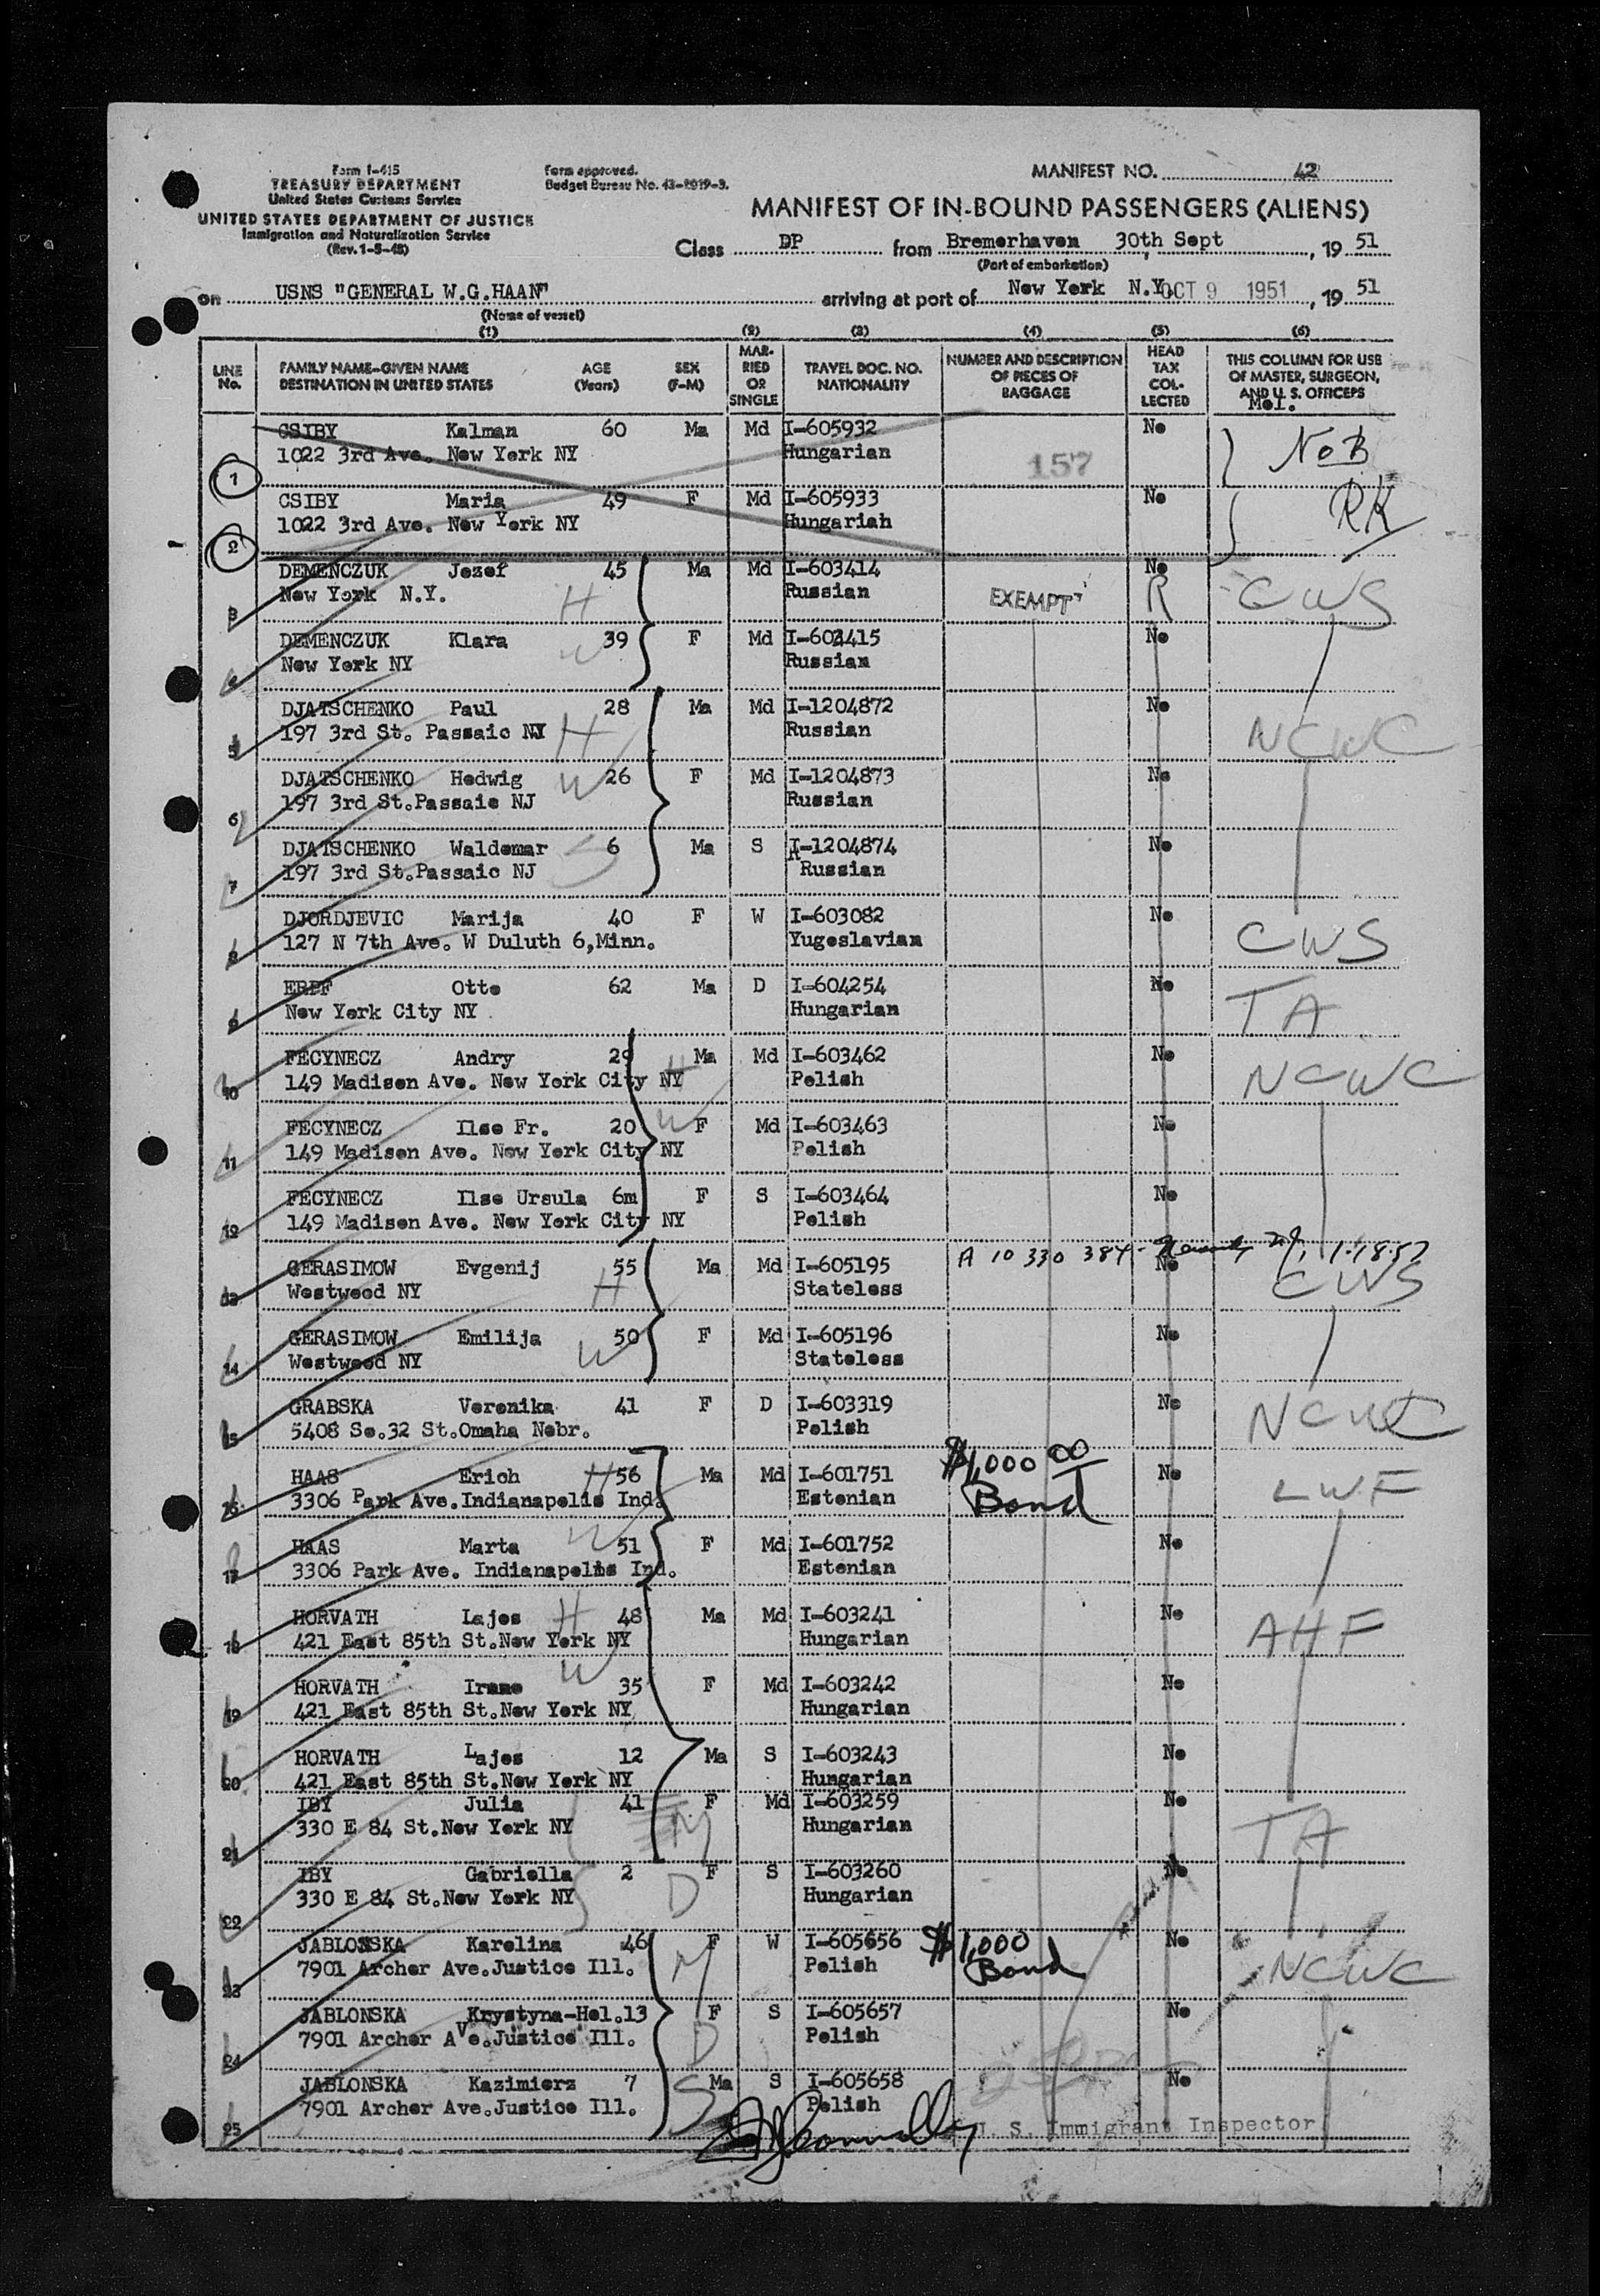 Form I-415
TREASURY DEPARTMENT
United States Customs Service
UNITED STATES DEPARTMENT OF JUSTICE
Immigration and Naturalization Service
(Rev. 1-5-48)
Form approved.
Budget Bureau No. 43-R019-3.
MANIFEST NO. 42
MANIFEST OF IN-BOUND PASSENGERS (ALIENS)
Class DP from Bremerhaven 30th Sept, 19 51
(Port of embarkation)
on USNS "GENERAL W.G.HAAN" arriving at port of New York N.Y. OCT 9 1951, 19 51
(Name of vessel)
(1) (2) (3) (4) (5) (6)
LINE No. FAMILY NAME-GIVEN NAME DESTINATION IN UNITED STATES AGE (Years) SEX (F-M) MARRIED OR SINGLE TRAVEL DOC. NO. NATIONALITY NUMBER AND DESCRIPTION OF PIECES OF BAGGAGE HEAD TAX COLLECTED THIS COLUMN FOR USE OF MASTER, SURGEON, AND U. S. OFFICERS
CSIBY Kalman 60 Ma Md I-605932 No NOB
1022 3rd Ave. New York NY Hungarian 157
1
CSIBY Maria 49 F Md I-605933 No RK
1022 3rd Ave. New York NY Hungariah
2
DEMENCZUK Jozef 45 Ma Md I-603414 No
3 New York N.Y. H Russian EXEMPT R CWS
DEMENCZUK Klara 39 F Md I-603415 No
4 New York NY W Russian
DJATSCHENKO Paul 28 Ma Md I-1204872 No
5 197 3rd St. Passaic NJ H Russian NCWC
DJATSCHENKO Hedwig 26 F Md I-1204873 No
6 197 3rd St.Passaic NJ W Russian
DJATSCHENKO Waldemar 6 Ma S I-1204874 No
7 197 3rd St.Passaic NJ S Russian
DJORDJEVIC Marija 40 F W I-603082 No
8 127 N 7th Ave. W Duluth 6,Minn. Yugoslavian CWS
ERPF Otto 62 Ma D I-604254 No
9 New York City NY Hungarian TA
FECYNECZ Andry 29 H Ma Md I-603462 No
10 149 Madison Ave. New York City NY Polish NCWC
FECYNECZ Ilse Fr. 20 W F Md I-603463 No
11 149 Madison Ave. New York City NY Polish
FECYNECZ Ilse Ursula 6m F S I-603464 No
12 149 Madison Ave. New York City NY Polish
A 10 330 384
GERASIMOW Evgenij 55 Ma Md I-605195 No
13 Westwood NY H Stateless CWS
GERASIMOW Emilija 50 F Md I-605196 No
14 Westwood NY W Stateless
GRABSKA Veronika 41 F D I-603319 No
15 5408 So.32 St.Omaha Nebr. Polish NCWC
HAAS Erich H 56 Ma Md I-601751 $1,000 00 No
16 3306 Park Ave.Indianapolis Ind. Estonian Bond LWF
HAAS Marta W 51 F Md I-601752 No
17 3306 Park Ave. Indianapolis Ind. Estonian
HORVATH Lajos H 48 Ma Md I-603241 No
18 421 East 85th St.New York NY Hungarian AHF
HORVATH Irene W 35 F Md I-603242 No
19 421 East 85th St.New York NY Hungarian
HORVATH Lajos 12 Ma S I-603243 No
20 421 East 85th St.New York NY Hungarian
IBY Julia 41 F Md I-603259 No
21 330 E 84 St.New York NY M Hungarian TA
IBY Gabriella 2 F S I-603260 No
22 330 E 84 St.New York NY D Hungarian
JABLONSKA Karolina 46 F W I-605656 $1,000 No
23 7901 Archer Ave.Justice Ill. M Polish Bond NCWC
JABLONSKA Krystyna-Hel.13 F S I-605657 No
24 7901 Archer Ave.Justice Ill. D Polish
JABLONSKA Kazimierz 7 Ma S I-605658 No
25 7901 Archer Ave.Justice Ill. S Polish
U. S. Immigrant Inspector